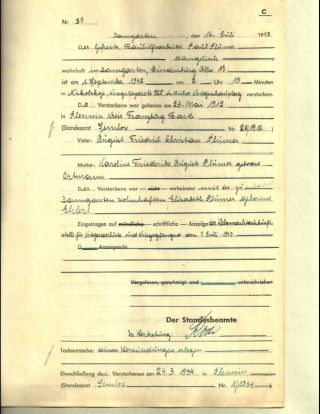 C
Nr. 31
Damgarten, den 16. Juli 1943
Der Gefreite, Paul Plümer
evangelisch
wohnhaft in Damgarten, Hindenburg Allee 19
ist am 1. September 1942 um 2 Uhr 15 Minuten
in Nikolskoje, verstorben.
D er Verstorbene war geboren am 23. Mai 1912
in Plennin Kreis Franzburg Barth
(Standesamt Semlow Nr. 29/1912)
Vater: August Friedrich Christian Plümer
Mutter: Karoline Friederike Auguste Plümer geborene
Ortmann
D er Verstorbene war — nicht — verheiratet mit der zu
Damgarten wohnhaften Elisabeth Plümer geborene
Ehlert
Eingetragen auf mündliche — schriftliche — Anzeige der Wehrmachtauskunft-
stelle für Kriegerverluste und Kriegsgefangene vom 1. Juli 1943
D Anzeigende
Vorgelesen, genehmigt und unterschrieben
Der Standesbeamte
In Vertretung:
Todesursache: seinen Verwundungen erlegen
Eheschließung de s Verstorbenen am 24.3.1934 in Plennin
(Standesamt Semlow Nr. 1/1934)